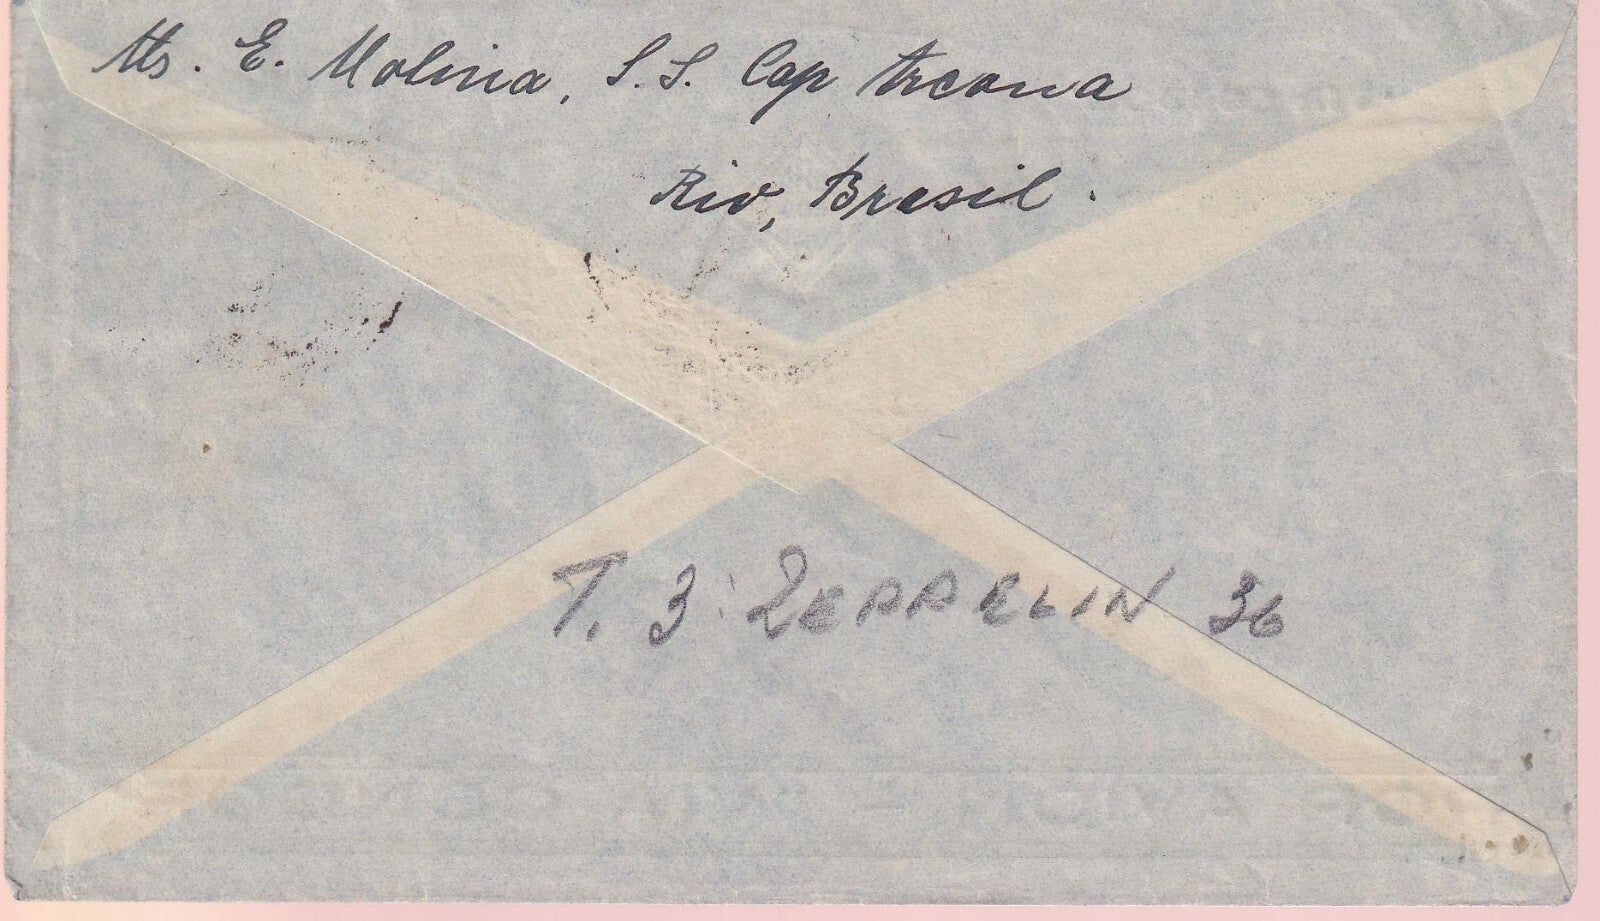 Ms. E. Molina, S.S. Cap Arcona
Rio, Brasil.
T. 3. ZEPPELIN 36